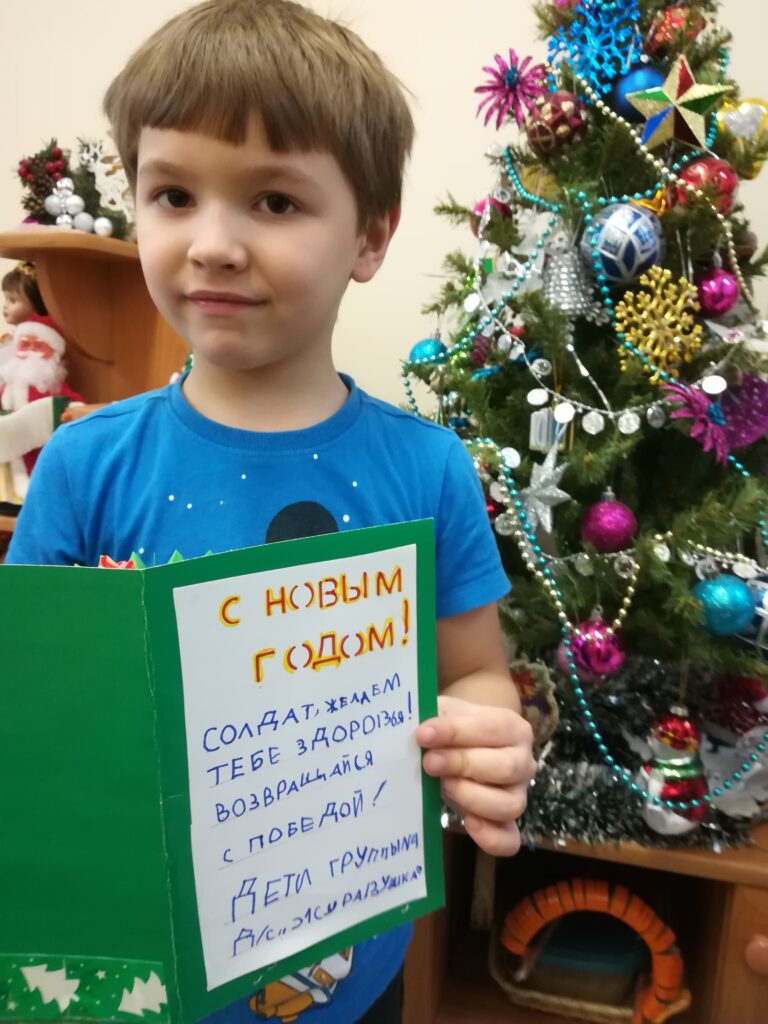 С НОВЫМ
ГОДОМ!
СОЛДАТ, ЖЕЛАЕМ
ТЕБЕ ЗДОРОВЬЯ!
ВОЗВРАЩАЙСЯ
С ПОБЕДОЙ!
ДЕТИ ГРУППЫ
Д/С